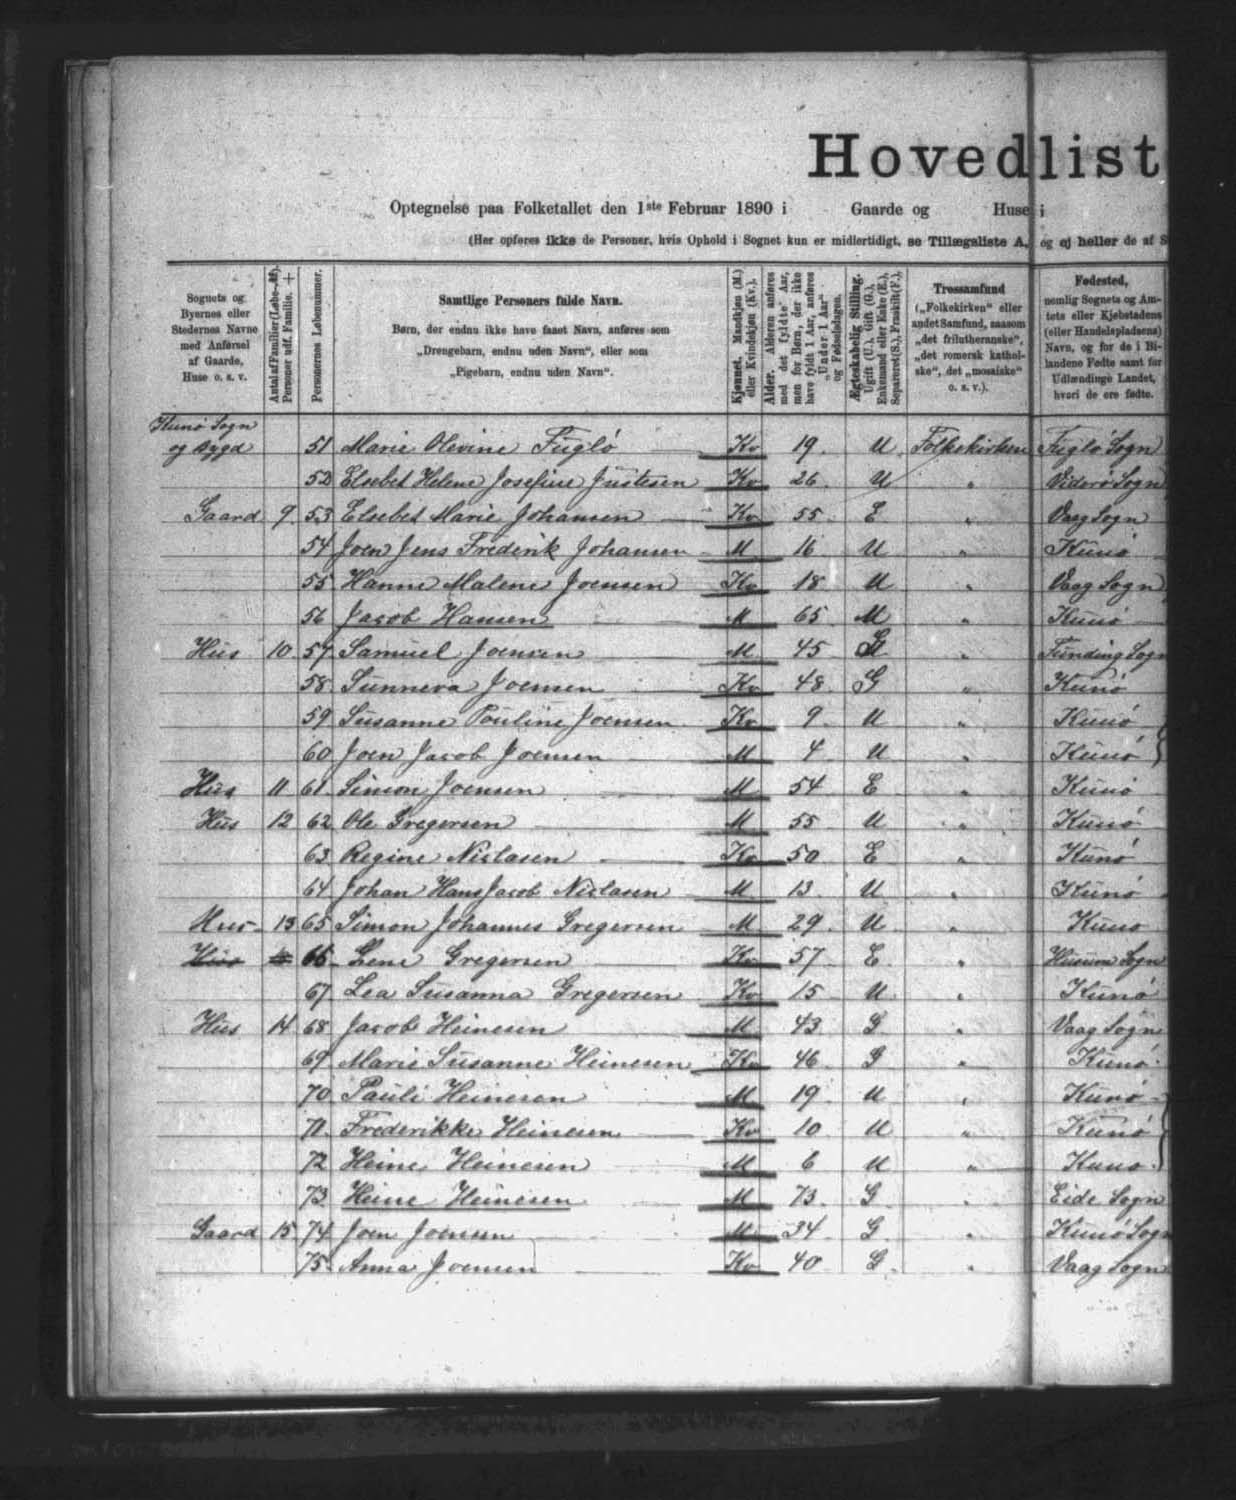 Hovedlist
Optegnelse paa Folketallet den 1ste Februar 1890 i Gaarde og Huse i
(Her opføres ikke de Personer, hvis Ophold i Sognet kun er midlertidigt, se Tillægsliste A, og ej heller de af S
Sognets og Byernes eller Stedernes Navne med Anførsel af Gaarde, Huse o. s. v.
Antal af Familier (Løbe-№). Personer udf. Familie. +
Personernes Løbenummer.
Samtlige Personers fulde Navn.
Børn, der endnu ikke have faaet Navn, anføres som
„Drengebarn, endnu uden Navn“, eller som
„Pigebarn, endnu uden Navn“.
Kjønnet. Mandkjøn (M.) eller Kvindekjøn (Kv.).
Alder. Alderen anføres med det fyldte Aar, men for Børn, der ikke have fyldt 1 Aar, anføres „Under 1 Aar“ og Fødselsdagen.
Ægteskabelig Stilling. Ugift (U.), Gift (G.), Enkemand eller Enke (E.), Separeret (S.), Fraskilt (F.).
Trossamfund
(„Folkekirken“ eller andet Samfund, saasom „det frilutheranske“, „det romersk katholske“, det „mosaiske“ o. s. v.).
Fødested,
nemlig Sognets og Amtets eller Kjøbstadens (eller Handelspladsens) Navn, og for de i Bilandene Fødte samt for Udlændinge Landet, hvori de ere fødte.
Kunø Sogn
og Bygd 51 Marie Olevine Fuglø Kv 19. U. Folkekirken Fuglø Sogn
52 Elsebet Helene Josefine Justesen Kv 26 U " Viderø Sogn
Gaard 9. 53 Elsebet Marie Johansen Kv 55 E " Vaag Sogn
54 Joen Jens Frederik Johansen M 16 U " Kunø
55 Hanne Malene Joensen Kv 18 U " Vaag Sogn
56 Jacob Hansen M 65 M " Kunø
Hus 10 57 Samuel Joensen M 45 G " Funding Sogn
58. Sunneva Joensen Kv 48 G " Kunø
59 Susanne Pouline Joensen Kv 9 U " Kunø
60 Joen Jacob Joensen M 4 U " Kunø
Hus 11 61. Simon Joensen M 54 E " Kunø
Hus 12 62 Ole Gregersen M 55 U " Kunø
63 Regine Niclasen Kv 50 E " Kunø
64 Johan Hans Jacob Niclasen M 13 U " Kunø
Hus 13 65 Simon Johannes Gregersen M 29 U " Kunø
Hus 66 Lene Gregersen Kv 57 E " Husum Sogn
67 Lea Susanna Gregersen Kv 15 U " Kunø
Hus 14 68 Jacob Heinesen M 43 G " Vaag Sogn
69 Marie Susanne Heinesen Kv 46 G " Kunø
70 Pauli Heinesen M 19 U " Kunø
71. Frederikke Heinesen Kv 10 U " Kunø
72 Heine Heinesen M 6 U " Kunø
73 Heine Heinesen M 73 G " Eide Sogn
Gaard 15 74 Joen Joensen M 34 G " Kunø Sogn
75. Anna Joensen Kv 40 G " Vaag Sogn